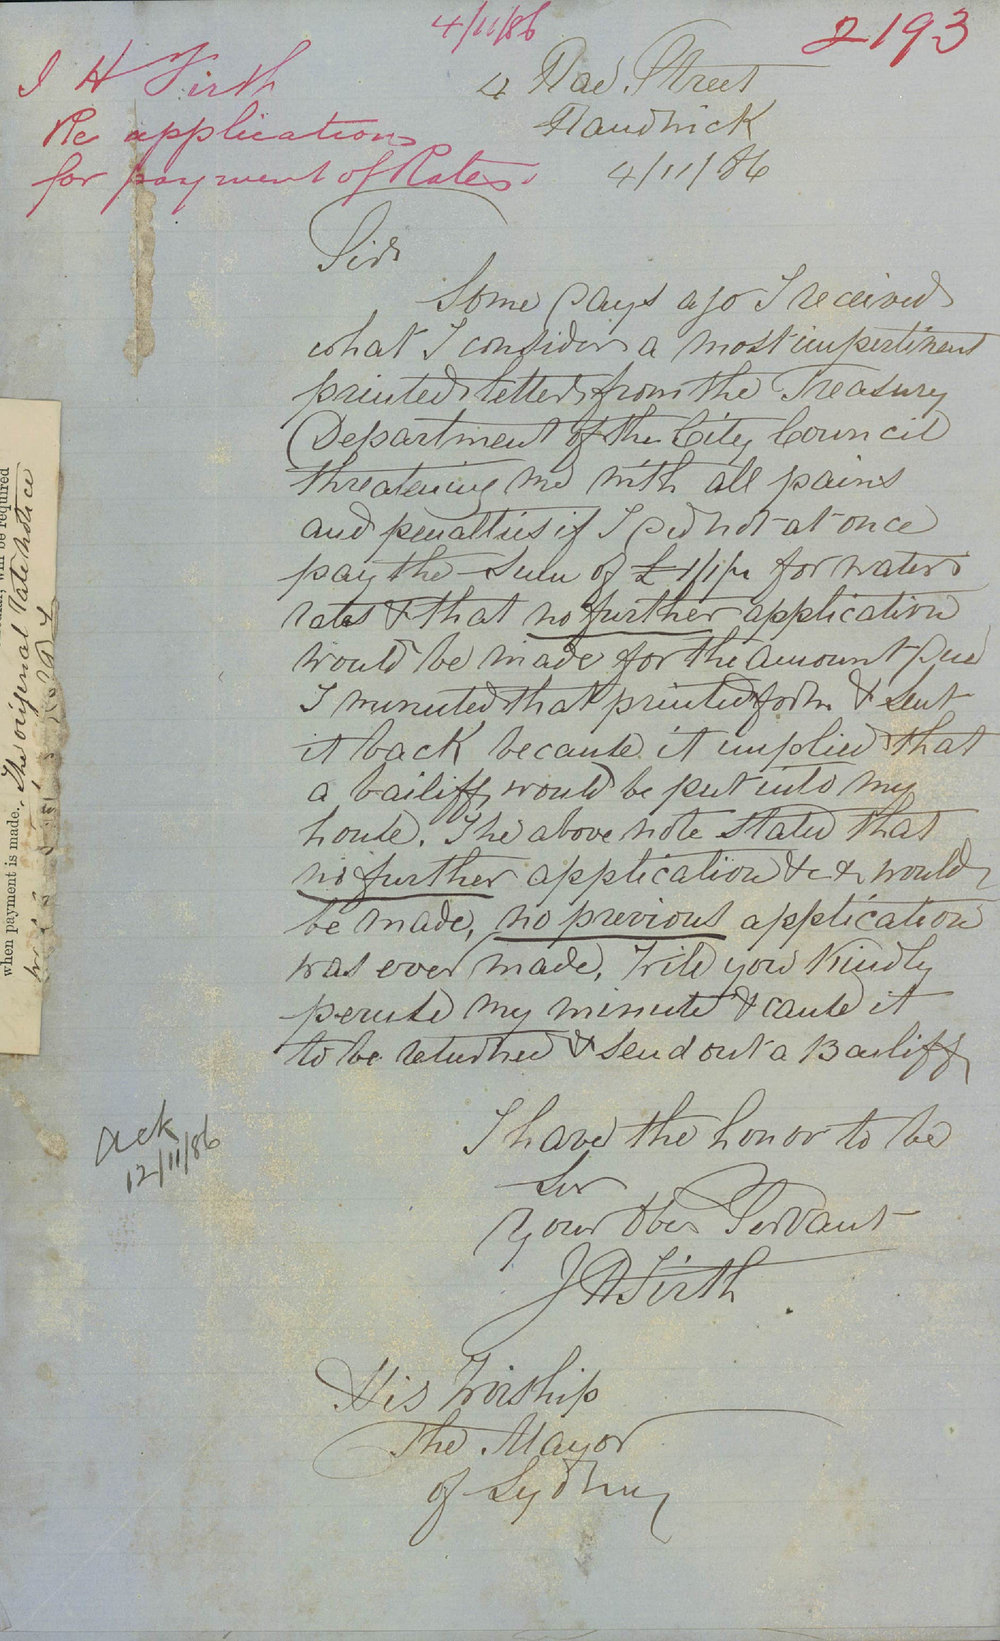 4/11/86
2193
J H Firth
Re application
for payment of Rates.
4 Rae Street
Randwick
4/11/86
Sir
Some Days ago I received
what I consider a most impertinent
printed letter from the Treasury
Department of the City Council
threatening me with all pains
and penalties if I Did not at once
pay the sum of £1/1/- for water
rates & that no further application
would be made for the amount Due
I minuted that printed form & sent
it back because it implied that
a bailiff would be put into my
house. The above note stated that
no further application &c & would
be made, no previous application
was ever made, Will you kindly
peruse my minute & cause it
to be returned & send out a Bailiff
I have the honor to be
Sir
Your Obe Servant
J H Firth
His Worship
The Mayor
of Sydney
Ack
12/11/86
will be required
when payment is made.
The original Rate notice